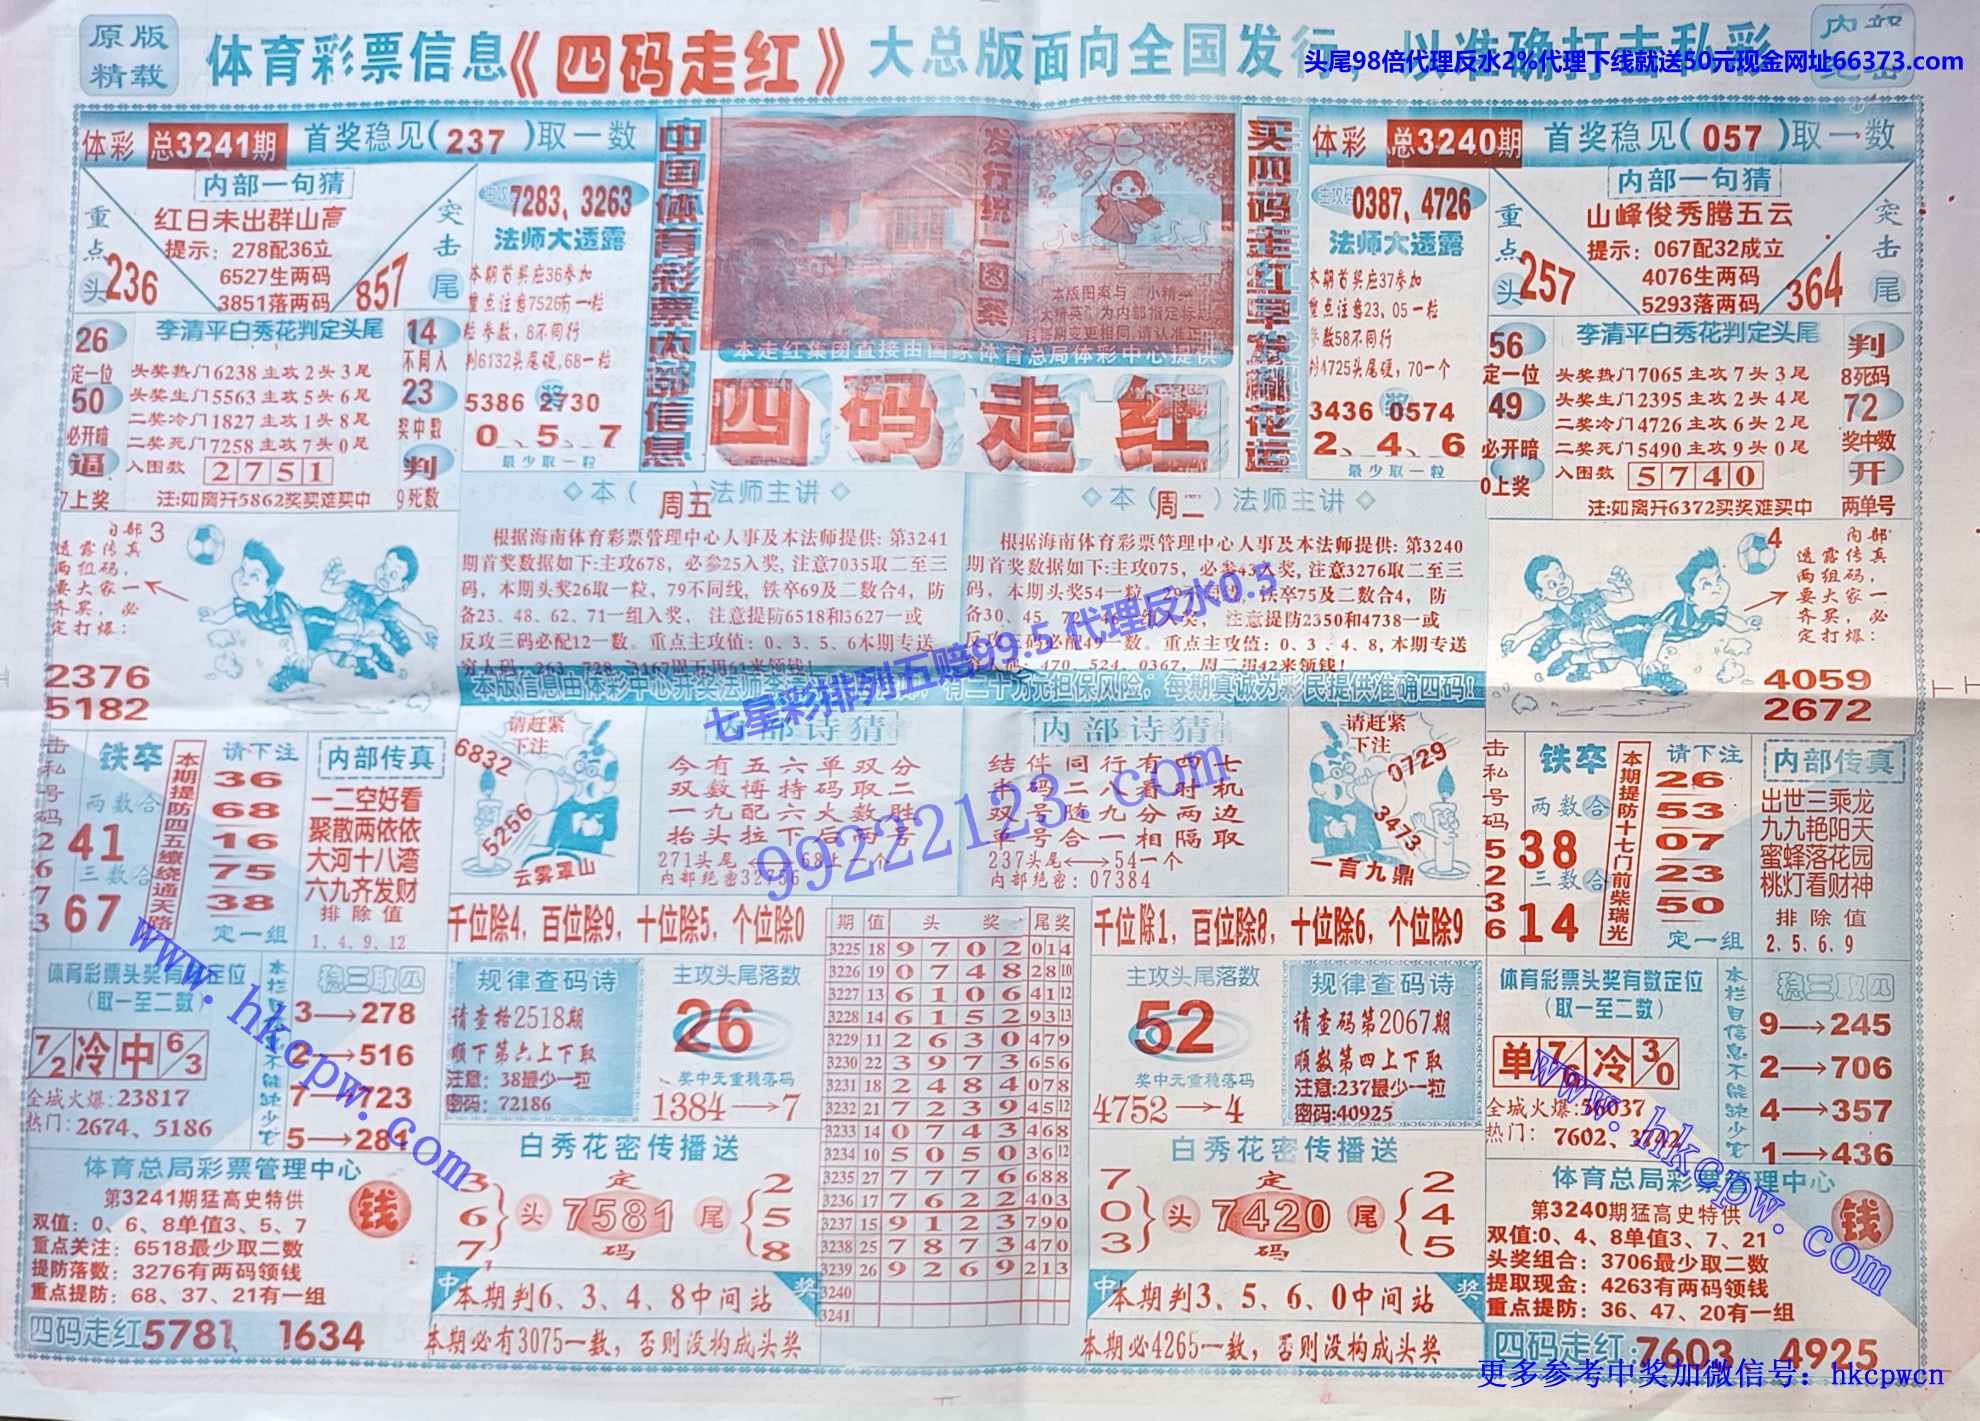 原版
精载
体育彩票信息《四码走红》大总版面向全国发行，以准确打击私彩
头尾98倍代理反水2%代理下线就送50元现金网址66373.com
体彩 总3241期 首奖稳见(237)取一数
内部一句猜
红日未出群山高
提示: 278配36立
6527生两码
3851落两码
重点头 236
突击尾 857
主攻码 7283、3263
法师大透露
本期首奖应36参加
重点注意7526有一粒
粒参数, 8不同行
判6132头尾硬, 68一粒
奖
5386 2730
0、5、7
最少取一粒
26
定一位
50
必开暗
逼
7上奖
李清平白秀花判定头尾
头奖热门6238主攻2头3尾
头奖生门5563主攻5头6尾
二奖冷门1827主攻1头8尾
二奖死门7258主攻7头0尾
入围数 2751
注:如离开5862奖买难买中
14
不同入
23
奖中数
判
9死数
中国体育彩票内部信息
发行统一图案
本走红集团直接由国家体育总局体彩中心提供
四码走红
买四码走红早发财花运
体彩 总3240期 首奖稳见(057)取一数
内部一句猜
山峰俊秀腾五云
提示: 067配32成立
4076生两码
5293落两码
重点头 257
突击尾 364
主攻码 0387、4726
法师大透露
本期首奖应37参加
重点注意23、05一粒
参数58不同行
判4725头尾硬, 70一个
奖
3436 0574
2、4、6
最少取一粒
56
定一位
49
必开暗
0
0上奖
李清平白秀花判定头尾
头奖热门7065主攻7头3尾
头奖生门2395主攻2头4尾
二奖冷门4726主攻6头2尾
二奖死门5490主攻9头0尾
入围数 5740
注:如离开6372买奖难买中
判
8死码
72
奖中数
开
两单号
内部 3
透露传真
两组码,
要大家一
齐买, 必
定打爆:
2376
5182
◇本(周五)法师主讲◇
根据海南体育彩票管理中心人事及本法师提供: 第3241
期首奖数据如下:主攻678, 必参25入奖, 注意7035取二至三
码, 本期头奖26取一粒, 79不同线, 铁卒69及二数合4, 防
备23、48、62、71一组入奖, 注意提防6518和3627一或
反攻三码必配12一数。重点主攻值: 0、3、5、6本期专送
穷人码: 263、728、3167周五用61来领钱!
◇本(周二)法师主讲◇
根据海南体育彩票管理中心人事及本法师提供: 第3240
期首奖数据如下:主攻075, 必参43入奖, 注意3276取二至三
码, 本期头奖54一粒, 29不同线, 铁卒75及二数合4, 防
备30、45、72、46一组入奖, 注意提防2350和4738一或
反攻三码必配49一数。重点主攻值: 0、3、4、8, 本期专送
穷人码: 470、524、0367, 周二用42来领钱!
内部 4
透露传真
两组码,
要大家一
齐买, 必
定打爆:
4059
2672
七星彩排列五赔99.5 代理反水0.5
99222123.com
击私号码2673
铁卒
两数合
41
三数合
67
本期提防四五缭绕通天路
请下注
36
68
16
75
38
定一组
内部传真
一二空好看
聚散两依依
大河十八湾
六九齐发财
排除值
1、4、9、12
请赶紧
下注
6832
5256
云雾罩山
内部诗猜
今有五六单双分
双数博持码取二
一九配六大数胜
抬头拉下后两号
271头尾⟷68上一个
内部绝密32756
内部诗猜
结伴同行有四七
半码二八看时机
双号随九分两边
单号合一相隔取
237头尾⟷54一个
内部绝密: 07384
请赶紧
下注
0729
3473
一言九鼎
击私号码5236
铁卒
两数合
38
三数合
14
本期提防十七门前柴瑞光
请下注
26
53
07
23
50
定一组
内部传真
出世三乘龙
九九艳阳天
蜜蜂落花园
桃灯看财神
排除值
2、5、6、9
千位除4, 百位除9, 十位除5, 个位除0
千位除1, 百位除8, 十位除6, 个位除9
体育彩票头奖有数定位
(取一至二数)
7/2 冷 中 6/3
全城火爆:23817
热门: 2674、5186
稳三取四
3→278
2→516
7→723
5→284
规律查码诗
请查格2518期
顺下第六上下取
注意: 38最少一粒
密码: 72186
主攻头尾落数
26
奖中元重稳落码
1384→7
期 值 头奖 尾奖
3225 18 9702 014
3226 19 0748 28 10
3227 13 6106 41 12
3228 14 6152 93 13
3229 11 2630 479
3230 22 3973 656
3231 18 2484 078
3232 21 7239 45 12
3233 14 0743 468
3234 10 5050 36 12
3235 27 7776 688
3236 17 7622 403
3237 15 9123 790
3238 25 7873 470
3239 26 9269 213
3240
3241
主攻头尾落数
52
奖中元重稳落码
4752→4
规律查码诗
请查码第2067期
顺数第四上下取
注意:237最少一粒
密码:40925
体育彩票头奖有数定位
(取一至二数)
单 冷 3/0
全城火爆:56037
热门: 7602、3742
本栏目信息不能缺少它
稳三取四
9→245
2→706
4→357
1→436
www.hkcpw.com
www.hkcpw.com
体育总局彩票管理中心
第3241期猛高史特供
双值: 0、6、8单值3、5、7
重点关注: 6518最少取二数
提防落数: 3276有两码领钱
重点提防: 68、37、21有一组
钱
四码走红5781、1634
白秀花密传播送
3 6 7 头 定 7581 码 尾 2 5 8
中 本期判6、3、4、8中间站 奖
本期必有3075一数, 否则没构成头奖
白秀花密传播送
7 0 3 头 定 7420 码 尾 2 4 5
中 本期判3、5、6、0中间站 奖
本期必4265一数, 否则没构成头奖
体育总局彩票管理中心
第3240期猛高史特供
双值:0、4、8单值3、7、21
头奖组合: 3706最少取二数
提取现金: 4263有两码领钱
重点提防: 36、47、20有一组
钱
四码走红:7603 4925
更多参考中奖加微信号: hkcpwcn